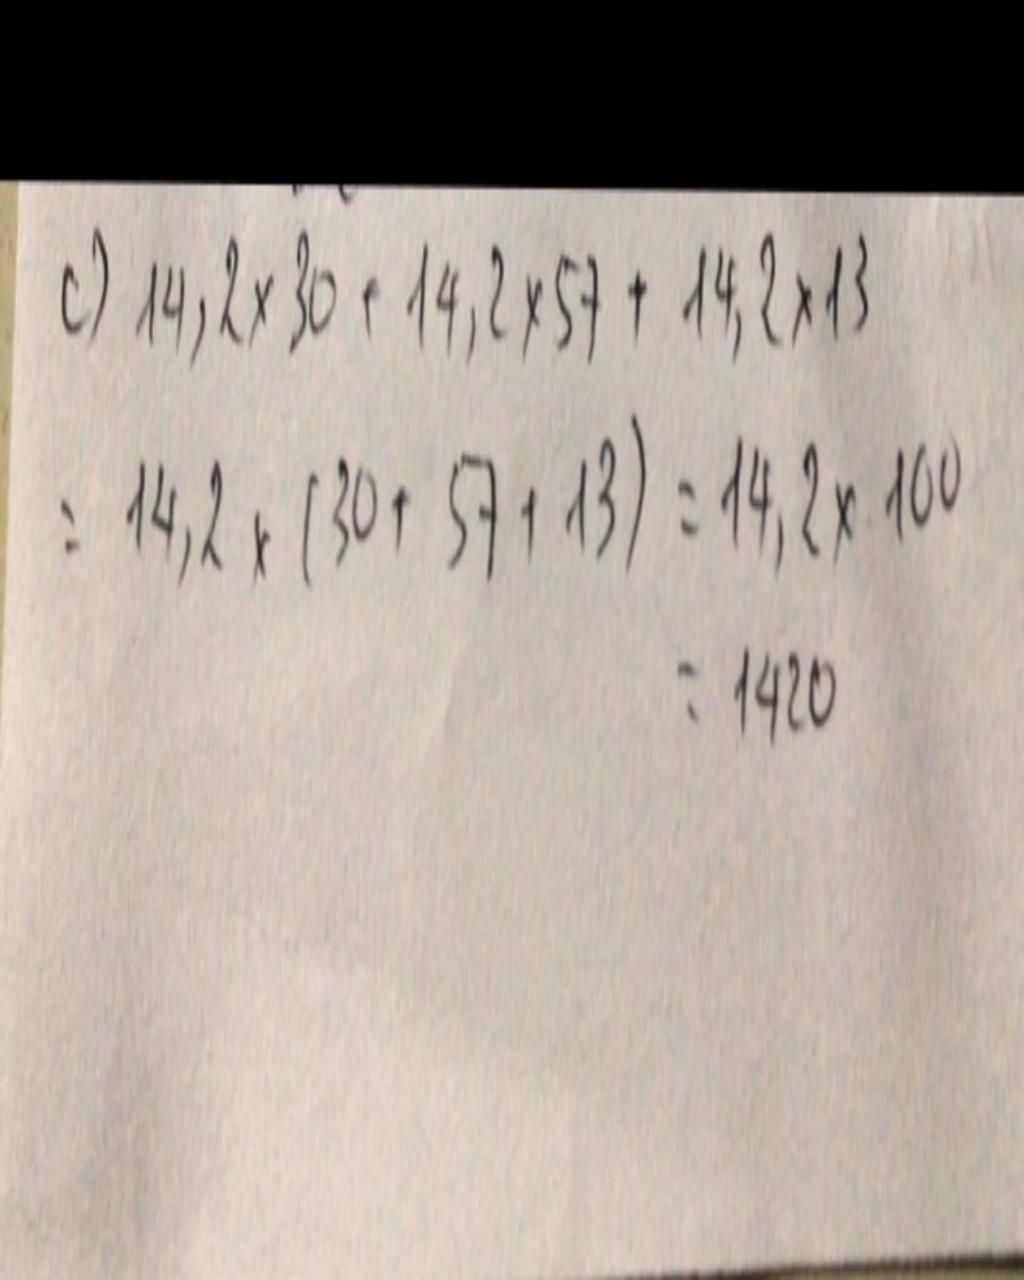 c) 14,2x30 + 14,2x57 + 14,2x13
= 14,2x(30+ 57+13) = 14,2x 100
= 1420